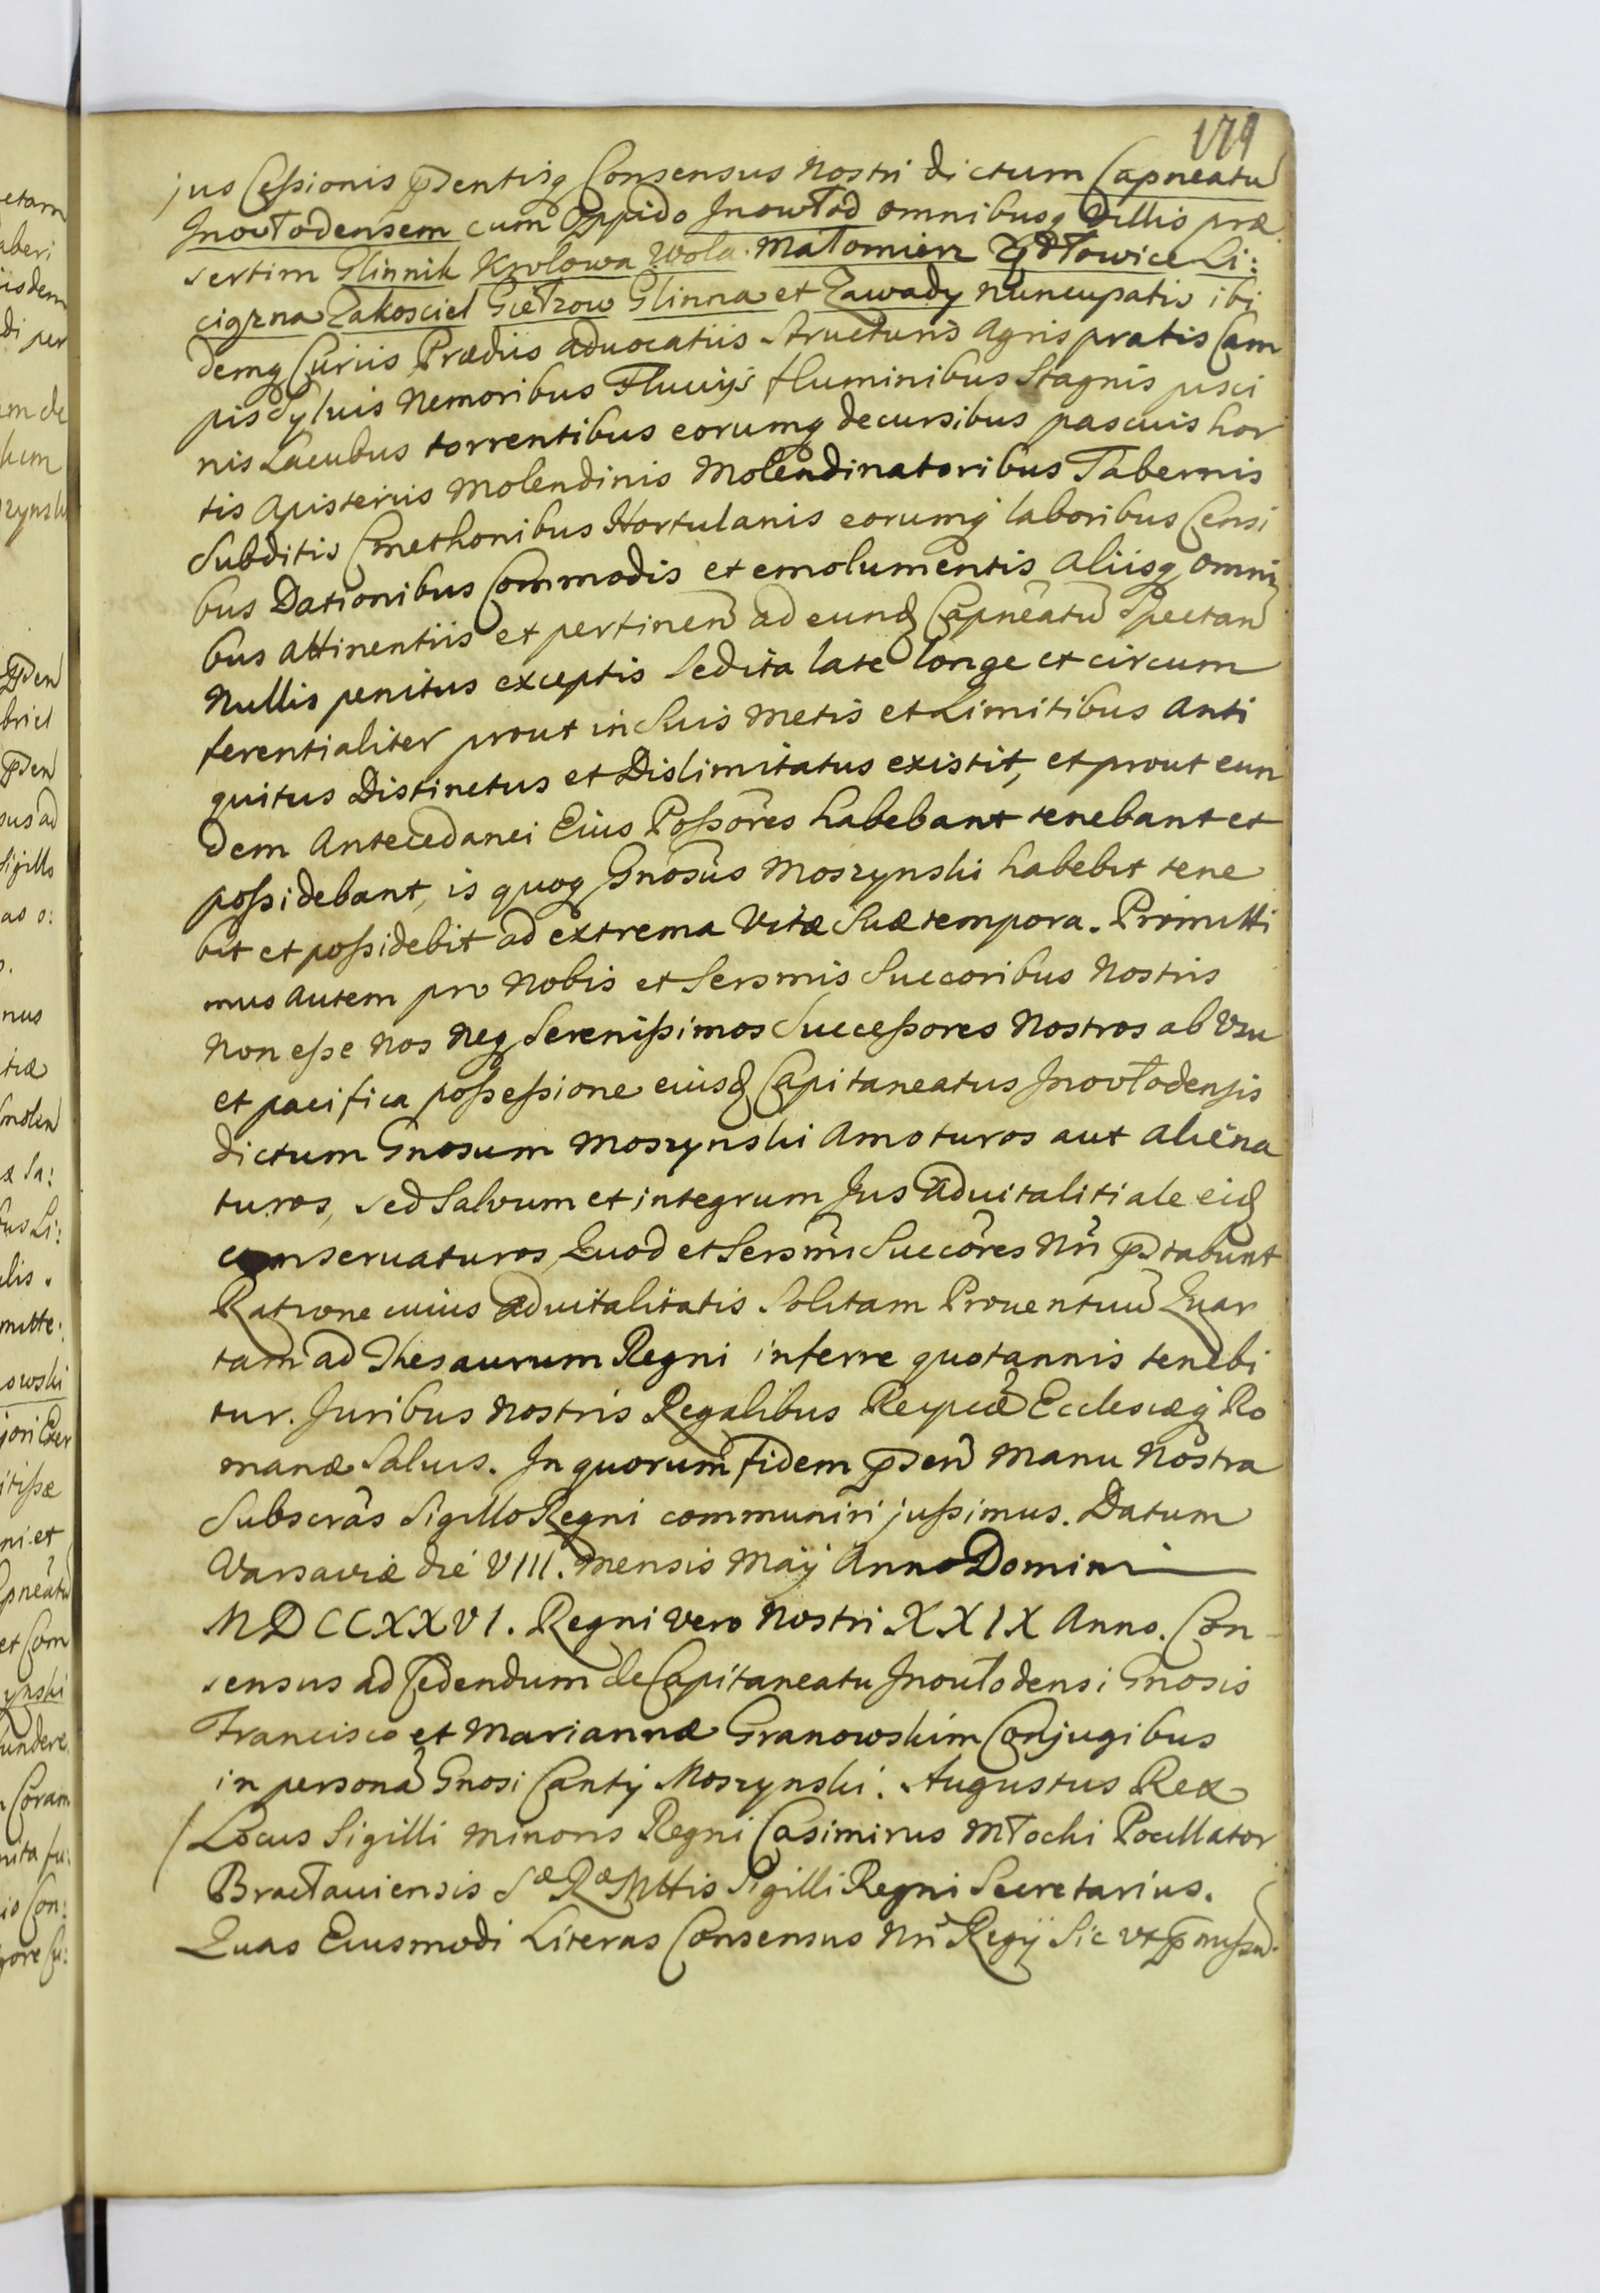 179
jus Cessionis pñtisq Consensus Nostri dictum Capneatũ
Jnowłodensem cum Oppido Jnowłod omnibusq Villis præ
sertim Glinnik Krolowa Wola Małomierz Zędłowice Li:
cigzna Zakosciel Giełzow Glinna et Zawady nuncupatis ibi
demq Curiis Prædiis advocatiis structuris Agris pratis Cam
pis Sylvis Nemoribus Fluvijs fluminibus Stagnis pisci
nis Lacubus torrentibus eorumq decursibus pascuis hor
tis Apisteriis Molendinis Molendinatoribus Tabernis
Subditis Cmethonibus Hortulanis eorumq laboribus Censi
bus Dationibus Commodis et emolumentis aliisq omni
bus attinentiis et pertineñ ad eund Capneatũ Spectañ
Nullis penitus exceptis sed ita late longe et circum
ferentialiter prout in Suis Metis et Limitibus Anti
quitus Distinctus et Dislimitatus existit, et prout eun
dem Antecedanei Eius Possõres habebant tenebant et
possidebant, is quoq Gnosũs Moszynski habebit tene
bit et possidebit ad extrema Vitæ Suæ tempora. Promitti
mus autem pro Nobis et Sersmis Succoribus Nostris
Non esse Nos Neq Serenissimos Successores Nostros ab Vsu
et pacifica possessione eiusd Capitaneatus Jnovłodensis
dictum Gnosum Moszynski Amoturos aut aliena
turos, sed Salvum et integrum Jus Advitalitiale eid
conservaturos, Quod et Sersm̃i Succõres Nr̃i pstabunt
Ratione cuius advitalitatis Solitam Proventuũ Quar
tam ad Thesaurum Regni inferre quotannis tenebi
tur. Juribus Nostris Regalibus Reipcæ Ecclesiæq Ro
manæ Salvis. Jn quorum fidem pseñ Manu Nostra
Subscrãs Sigillo Regni communiri jussimus. Datum
Varsaviæ die VIII. Mensis Maÿ Anno Domini
MDCCXXVI. Regni vero Nostri XXIX Anno. Con
sensus ad Cedendum de Capitaneatu Jnoutodensi Gnosis
Francisco et Mariannæ Granowskim Conjugibus
in personã Gnosi Cantij Moszynski. Augustus Rex
/Locus Sigilli Minoris Regni Casimirus Młocki Pocillator
Bracłaviensis Sæ Ræ Mttis Sigilli Regni Secretarius.
Quas Eiusmodi Literas Consensus Nr̃i Regij Sic vt